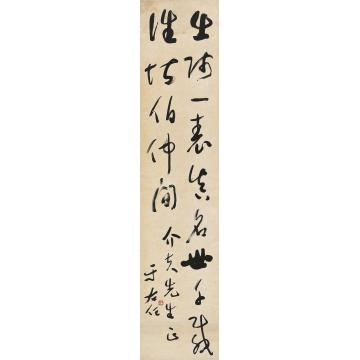 出师一表真名世千载
谁堪伯仲间
介夫先生正
于右任